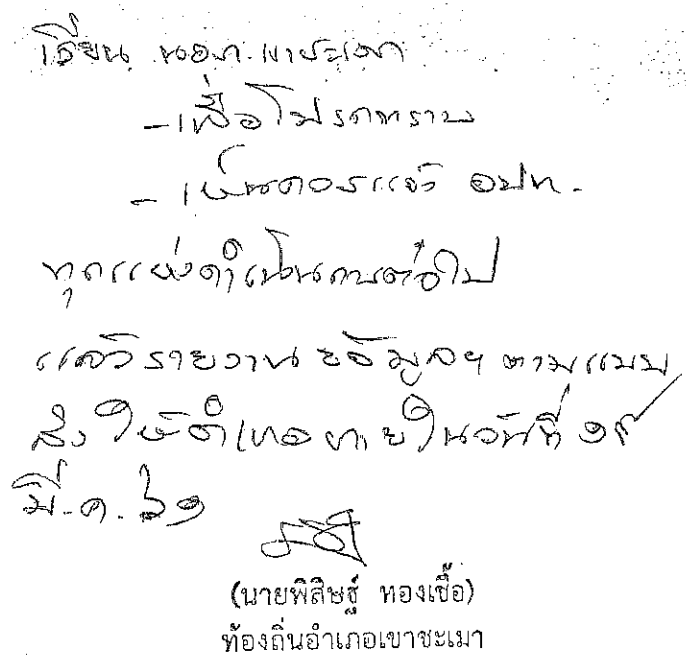 เรียน นอภ.เขาชะเมา
- เพื่อโปรดทราบ
- เห็นควรแจ้ง อปท.
ทุกแห่งดำเนินการต่อไป
แล้วรายงานข้อมูลฯ ตามแบบ
ส่งให้อำเภอภายในวันที่
มี.ค. ๖๑
(นายพิสิษฐ์ ทองเชื้อ)
ท้องถิ่นอำเภอเขาชะเมา